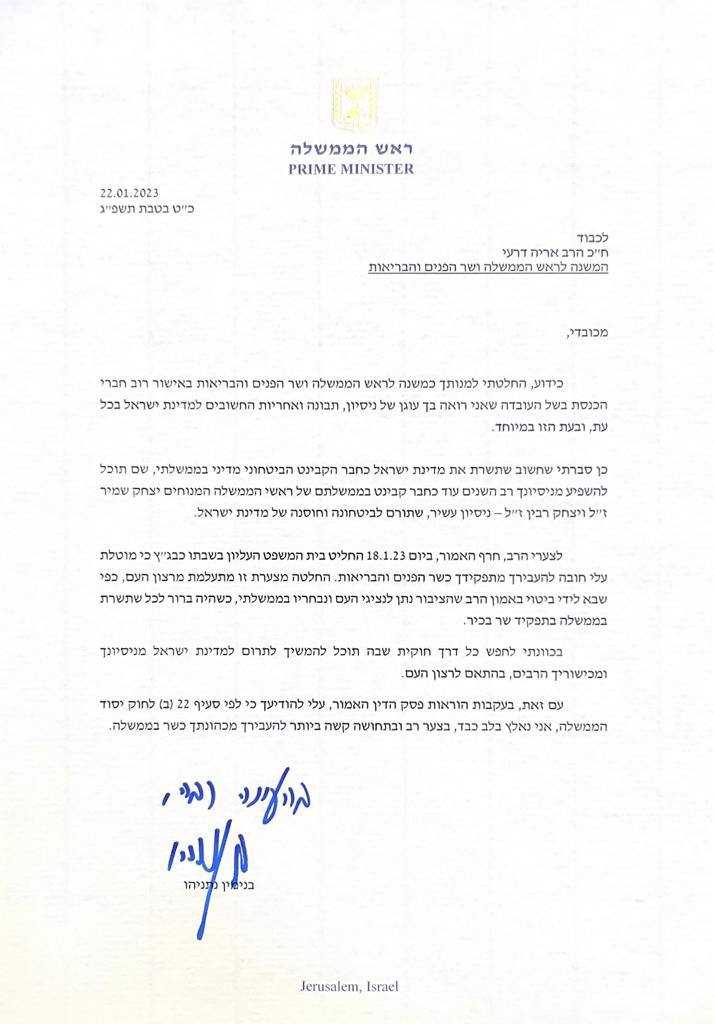 ראש הממשלה
PRIME MINISTER
22.01.2023
כ״ט בטבת תשפ״ג
לכבוד
ח״כ הרב אריה דרעי
המשנה לראש הממשלה ושר הפנים והבריאות
מכובדי,
כידוע, החלטתי למנותך כמשנה לראש הממשלה ושר הפנים והבריאות באישור רוב חברי
הכנסת בשל העובדה שאני רואה בך עוגן של ניסיון, תבונה ואחריות החשובים למדינת ישראל בכל
עת, ובעת הזו במיוחד.
כן סברתי שחשוב שתשרת את מדינת ישראל כחבר הקבינט הביטחוני מדיני בממשלתי, שם תוכל
להשפיע מניסיונך רב השנים עוד כחבר קבינט בממשלתם של ראשי הממשלה המנוחים יצחק שמיר
ז״ל ויצחק רבין ז״ל – ניסיון עשיר, שתורם לביטחונה וחוסנה של מדינת ישראל.
לצערי הרב, חרף האמור, ביום 18.1.23 החליט בית המשפט העליון בשבתו כבג״ץ כי מוטלת
עלי חובה להעבירך מתפקידך כשר הפנים והבריאות. החלטה מצערת זו מתעלמת מרצון העם, כפי
שבא לידי ביטוי באמון הרב שהציבור נתן לנציגי העם ונבחריו בממשלתי, כשהיה ברור לכל שתשרת
בממשלה בתפקיד שר בכיר.
בכוונתי לחפש כל דרך חוקית שבה תוכל להמשיך לתרום למדינת ישראל מניסיונך
ומכישוריך הרבים, בהתאם לרצון העם.
עם זאת, בעקבות הוראות פסק הדין האמור, עלי להודיעך כי לפי סעיף 22 (ב) לחוק יסוד
הממשלה, אני נאלץ בלב כבד, בצער רב ובתחושה קשה ביותר להעבירך מכהונתך כשר בממשלה.
בידידות רבה,
בנימין נתניהו
Jerusalem, Israel